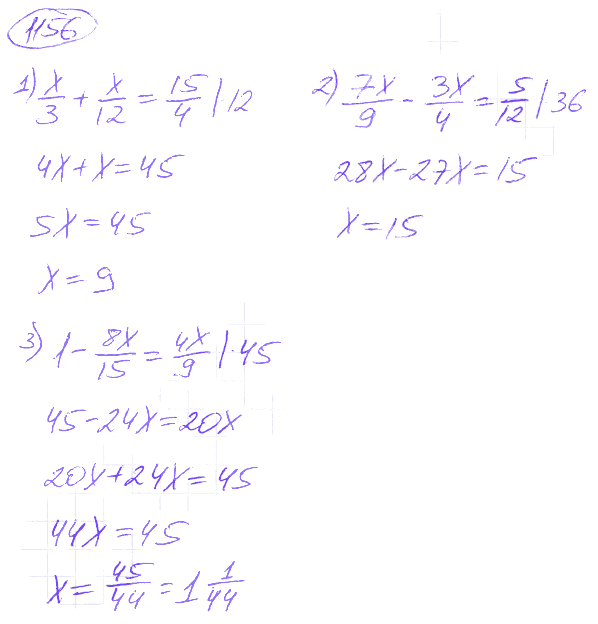 1156
1) x/3 + x/12 = 15/4 | 12
4x + x = 45
5x = 45
x = 9
2) 7x/9 - 3x/4 = 5/12 | 36
28x - 27x = 15
x = 15
3) 1 - 8x/15 = 4x/9 | · 45
45 - 24x = 20x
20x + 24x = 45
44x = 45
x = 45/44 = 1 1/44